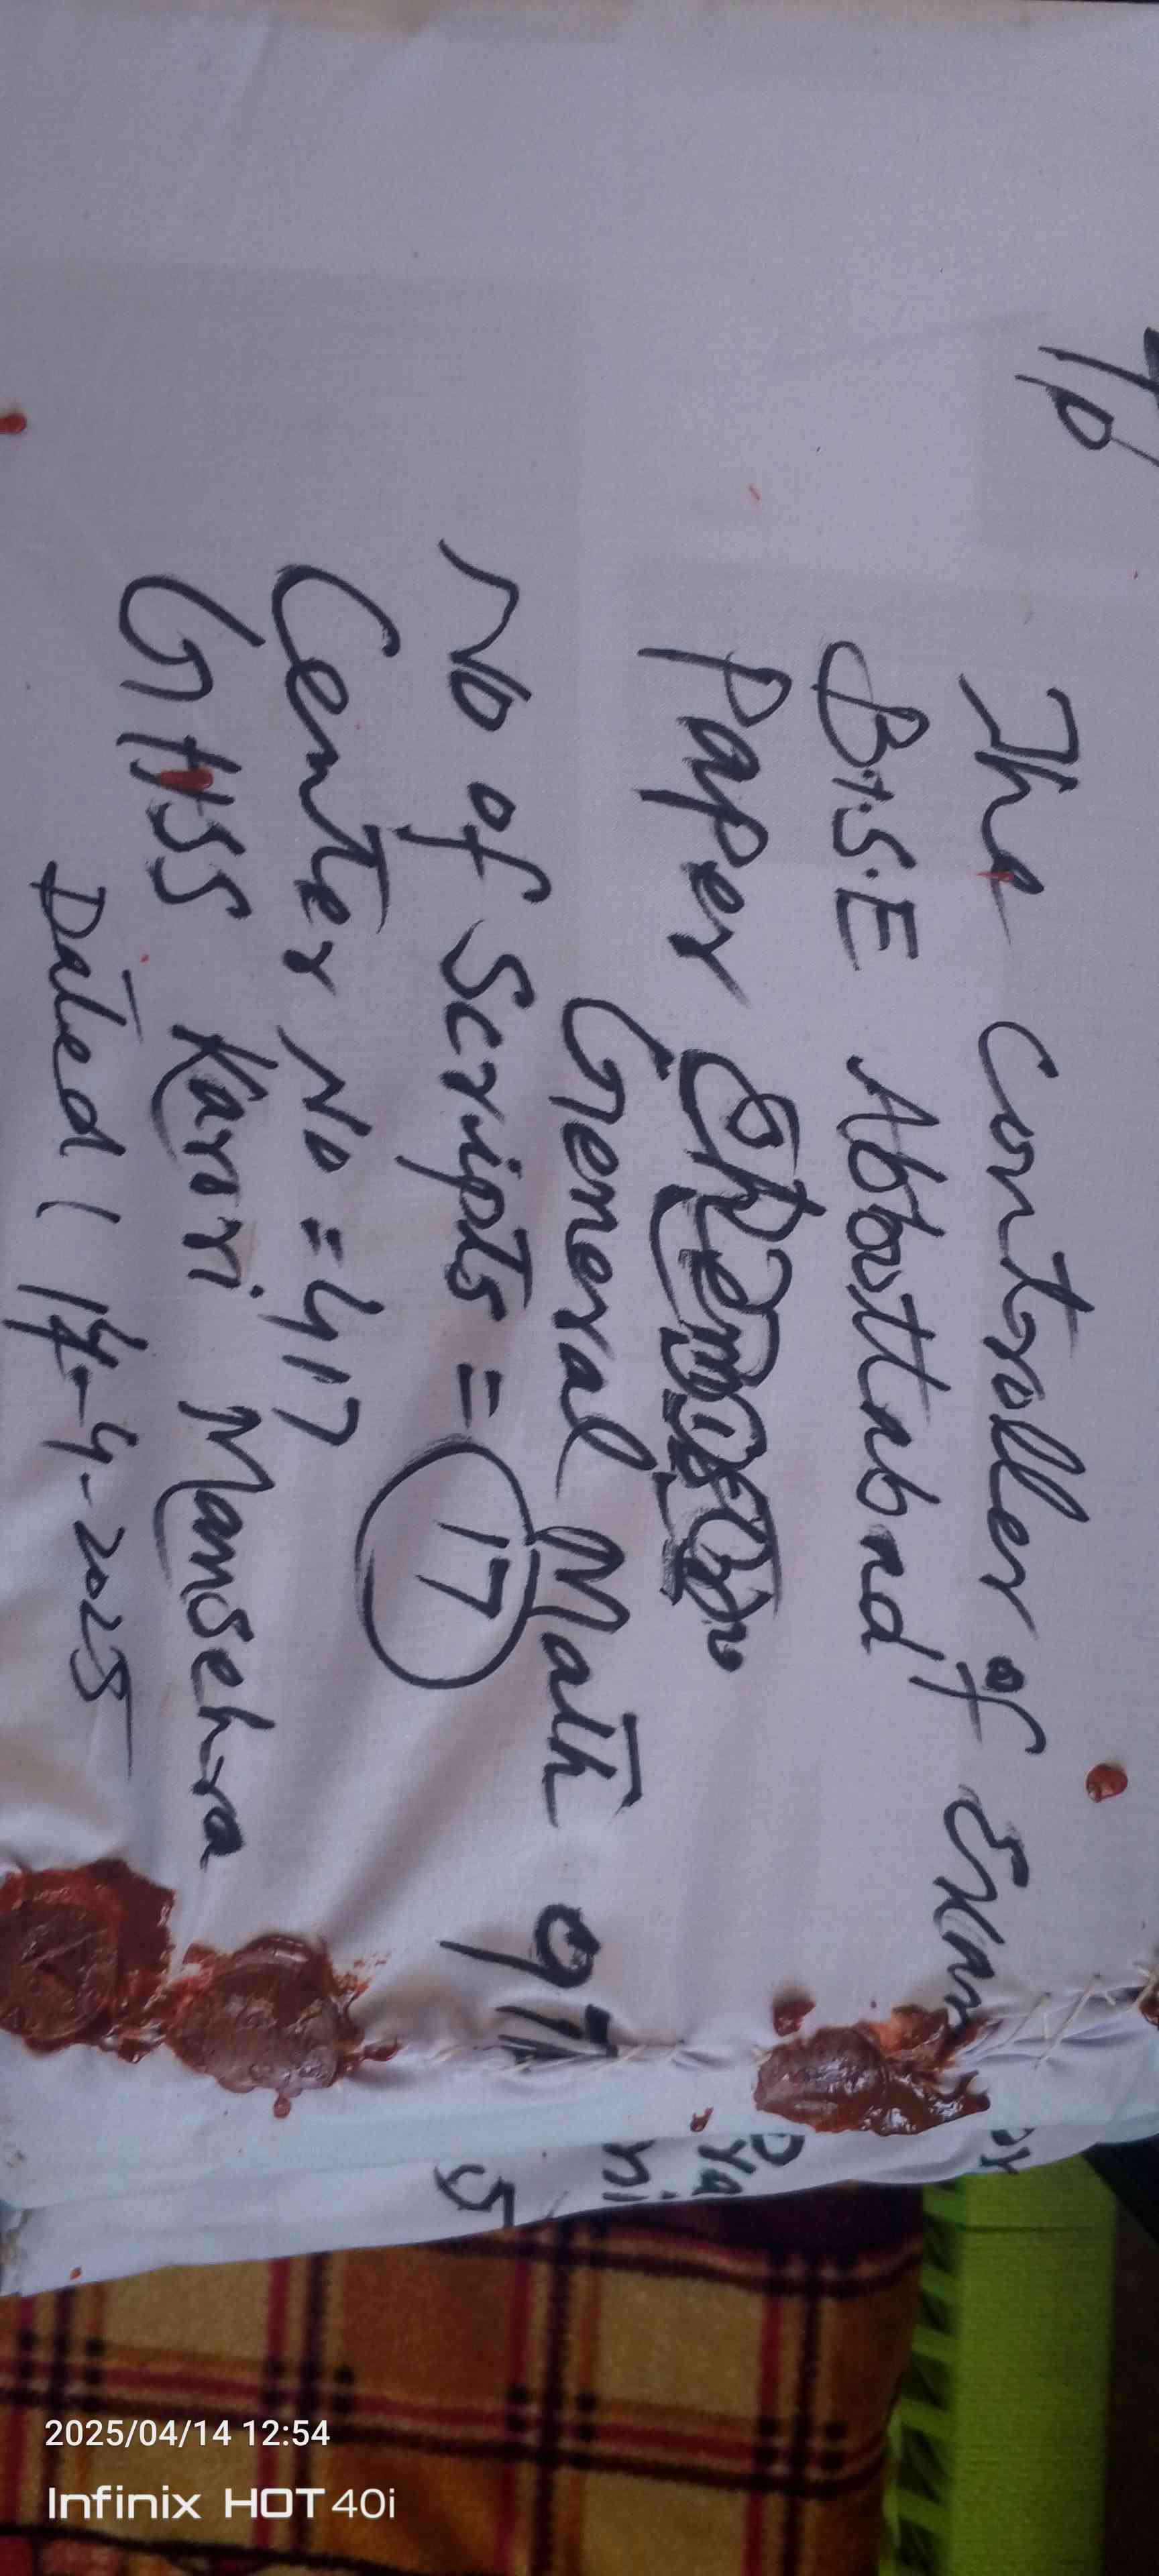 To
The Controller of Exam
B.I.S.E Abbottabad
Paper
General Math 9Th
No of Scripts = 17
Center No = 417
GHSS Karori Mansehra
Dated 14-4-2025
2025/04/14 12:54
Infinix HOT 40i